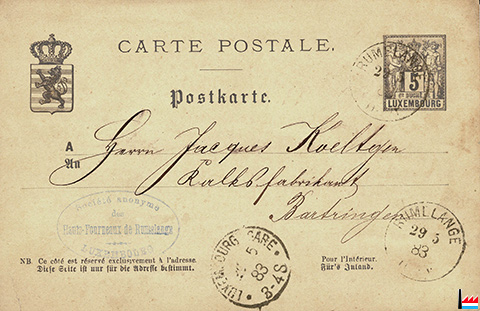 CARTE POSTALE.
Postkarte.
RUMELANGE
29
5
LUXEMBOURG
A
An
Herrn Jacques Koeltgen
Kalksfabrikant
Bartringen
Société anonyme
des
Hauts-Fourneaux de Rumelange
LUXEMBOURG
LUXEMBOURG GARE
5
83
3-4S
RUMELANGE
29 5
83
NB. Ce côté est réservé exclusivement à l'adresse.
Diese Seite ist nur für die Adresse bestimmt.
Pour l'intérieur.
Für's Inland.